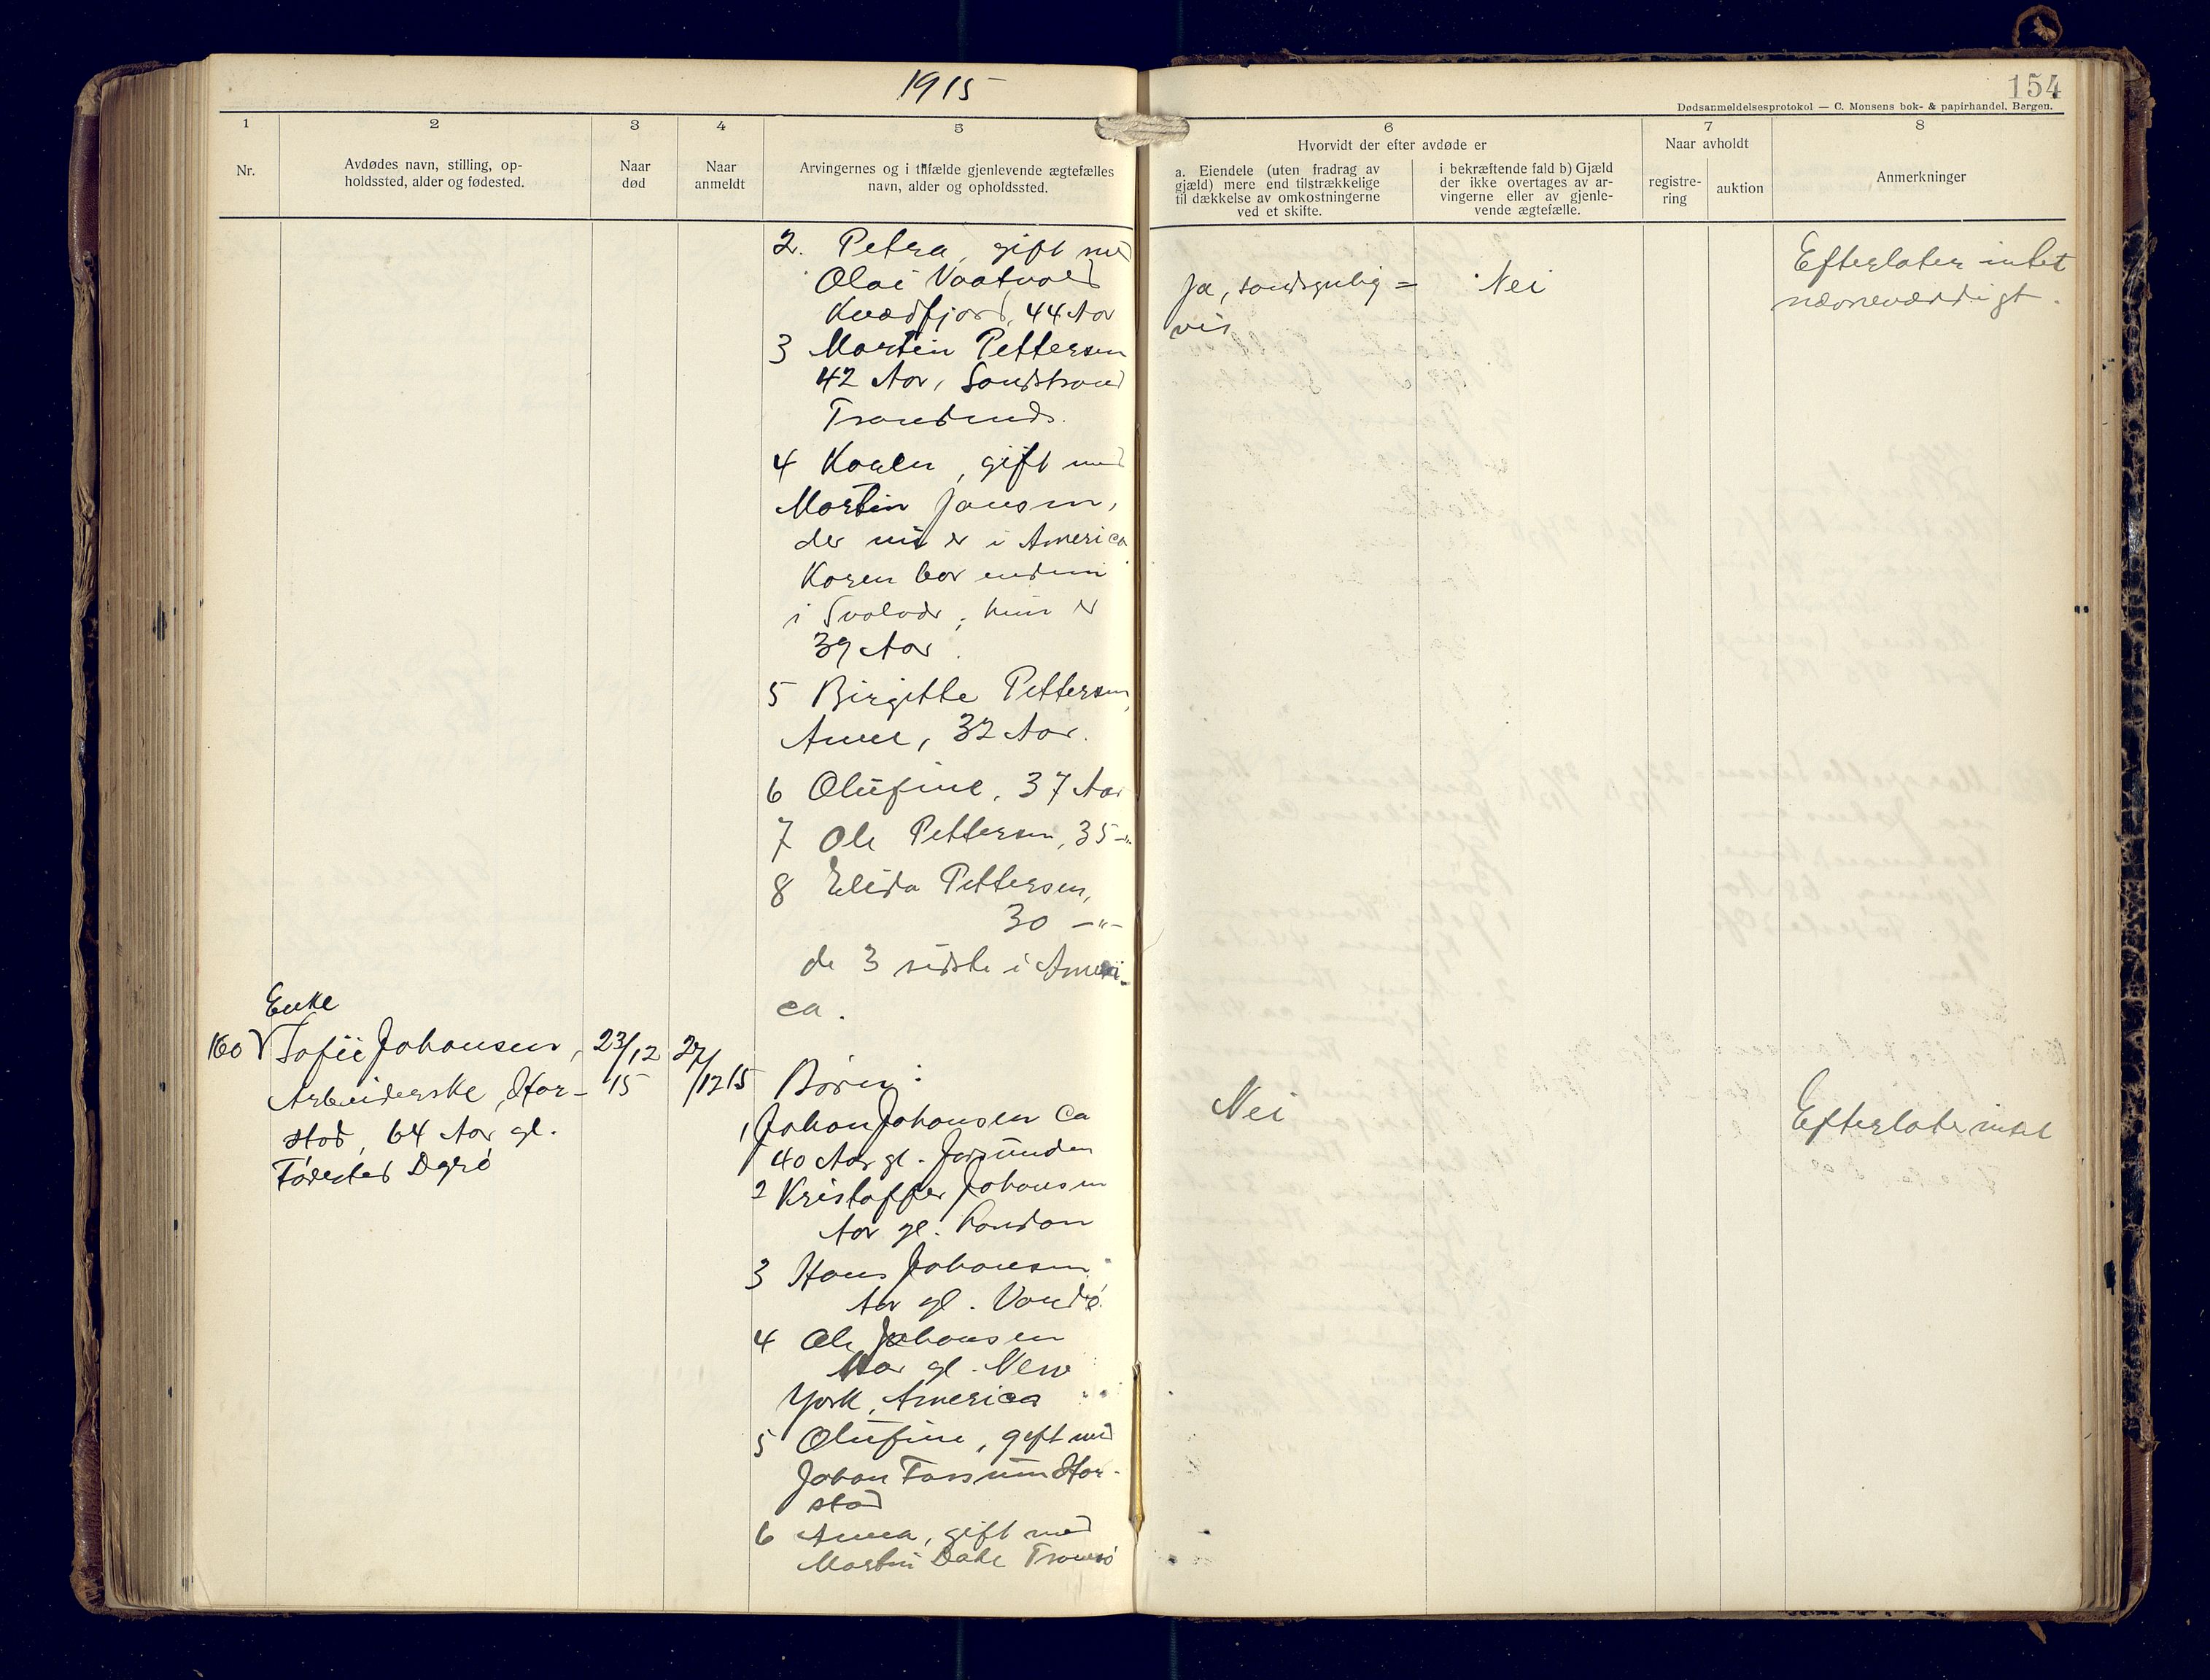 1915
154
Dødsanmeldelsesprotokol — C. Monsens bok- & papirhandel, Bergen.
1
2
3
4
5
6
7
8
Nr.
Avdødes navn, stilling, op-
holdssted, alder og fødested.
Naar
død
Naar
anmeldt
Arvingernes og i tilfælde gjenlevende ægtefælles
navn, alder og opholdssted.
Hvorvidt der efter avdøde er
a. Eiendele (uten fradrag av
gjæld) mere end tilstrækkelige
til dækkelse av omkostningerne
ved et skifte.
i bekræftende fald b) Gjæld
der ikke overtages av ar-
vingerne eller av gjenle-
vende ægtefælle.
Naar avholdt
registre-
ring
auktion
Anmerkninger
2. Petra, gift med
Olai Vaatvold
Kvædfjord, 44 Aar
3 Martin Pettersen
42 Aar, Sandstrand
Trondends.
4 Karen, gift med
Martin Jansen,
der nu er i America
Karen bor endnu
i Svolvær; hun er
39 Aar.
5 Birgitte Pettersen,
32 Aar.
6 Olufine, 37 Aar
7 Ole Pettersen, 35 -"-
8 Elida Pettersen,
30 -"-
de 3 sidste i Ameri-
ca.
Ja, sandsynlig=
vis
Nei
Efterlater intet
nævneværdigt.
Enke
160 Sofie Johansen,
Arbeiderske, Har-
stad, 64 Aar gl.
Fødested Dyrø
23/12
15
27/12 15
Børn:
1 Johan Johansen ca
40 Aar gl.
2 Kristoffer Johansen
Aar gl. London
3 Hans Johansen
Aar gl. Vardø
4 Ole Johansen
Aar gl. New
York, America
5 Olufine, gift med
Johan Fossum Har-
stad
6 Anna, gift med
Martin Dahl Tromsø
Nei
Efterlater intet